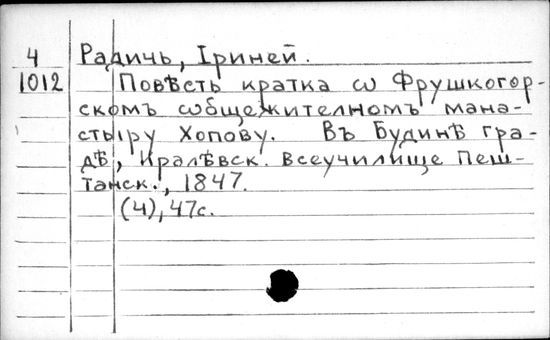 4 Радичь, Іриней.
1012 Повѣсть кратка ѡ Фрушкогор-
скомъ ѡбщежителномъ мана-
стыру Хопову. Въ Будинѣ гра-
дѣ, Кралѣвск. Всеучилище Пеш-
танск., 1847.
(4), 47с.